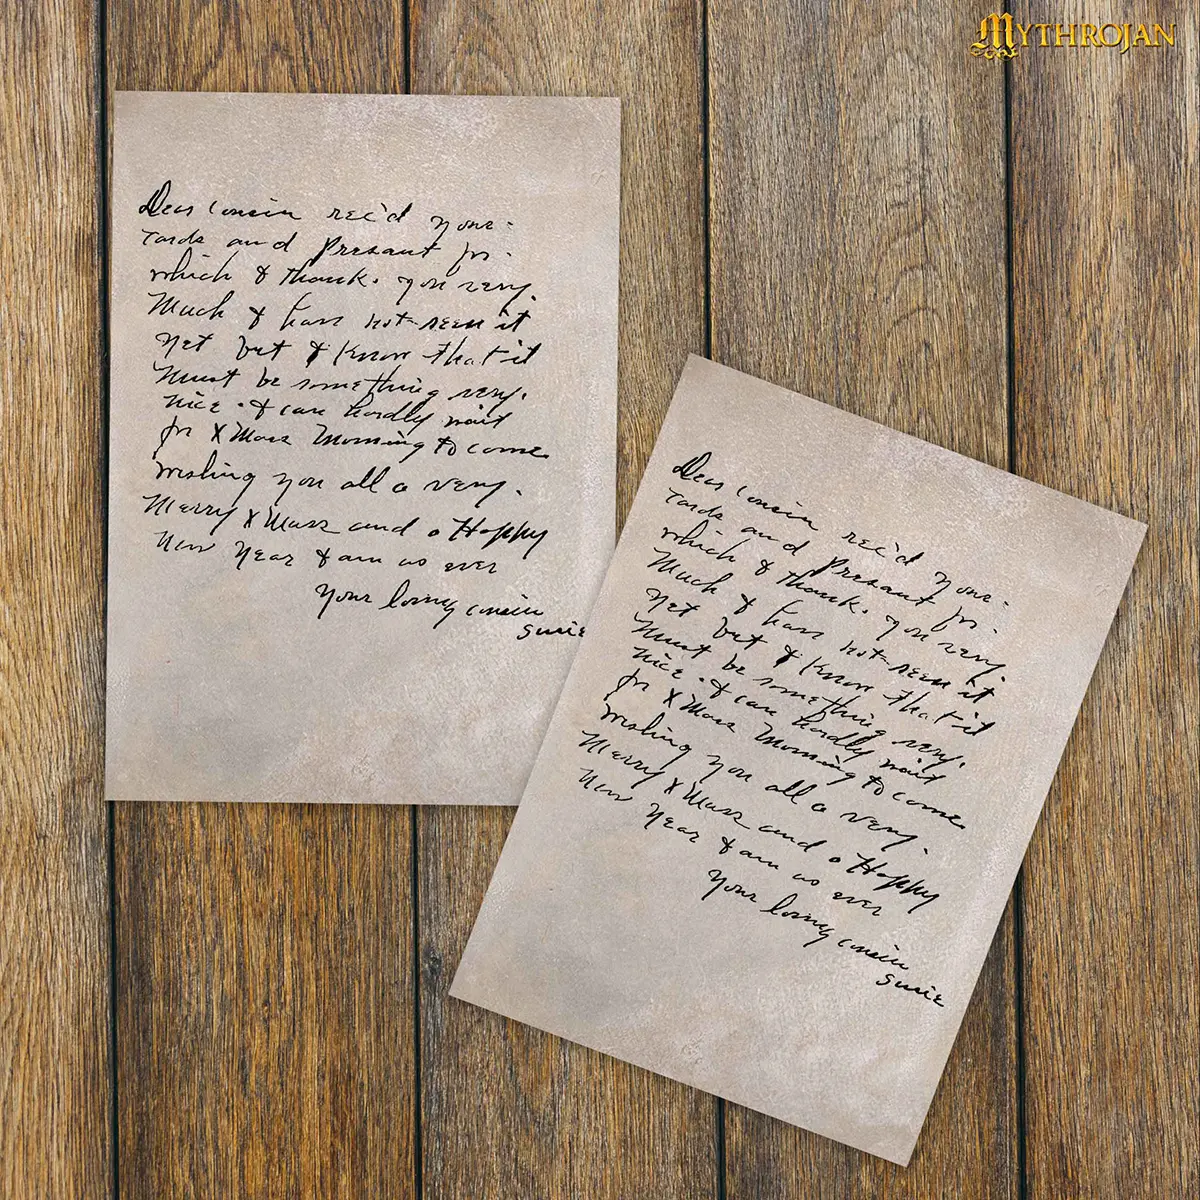 MYTHROJAN
Dear Cousin rec'd your
cards and Present for
which I thank you very
Much I have not seen it
yet but I know that it
Must be something very
nice. I can hardly wait
for XMass Morning to come
wishing you all a very
Merry XMass and a Happy
New Year I am as ever
Your loving cousin
Susie
Dear Cousin rec'd your
cards and Present for
which I thank you very
Much I have not seen it
yet but I know that it
Must be something very
nice. I can hardly wait
for XMass Morning to come
wishing you all a very
Merry XMass and a Happy
New Year I am as ever
Your loving cousin
Susie